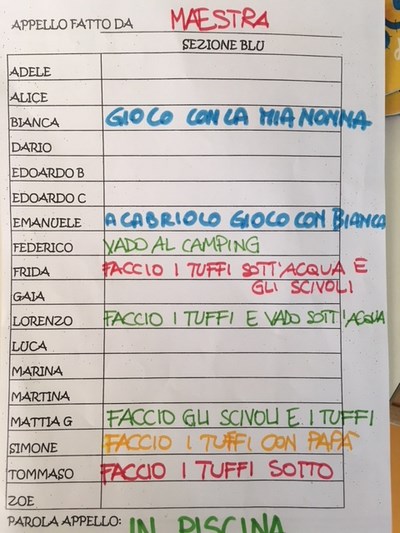 APPELLO FATTO DA MAESTRA
SEZIONE BLU
ADELE
ALICE
BIANCA GIOCO CON LA MIA NONNA
DARIO
EDOARDO B
EDOARDO C
EMANUELE A CABRIOLO GIOCO CON BIANCA
FEDERICO VADO AL CAMPING
FRIDA FACCIO I TUFFI SOTT'ACQUA E
GLI SCIVOLI
GAIA
LORENZO FACCIO I TUFFI E VADO SOTT'ACQUA
LUCA
MARINA
MARTINA
MATTIA G FACCIO GLI SCIVOLI E I TUFFI
SIMONE FACCIO I TUFFI CON PAPÀ
TOMMASO FACCIO I TUFFI SOTTO
ZOE
PAROLA APPELLO: IN PISCINA